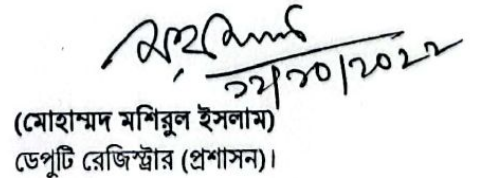 ১২/১০/২০২২
(মোহাম্মদ মশিরুল ইসলাম)
ডেপুটি রেজিস্ট্রার (প্রশাসন)।